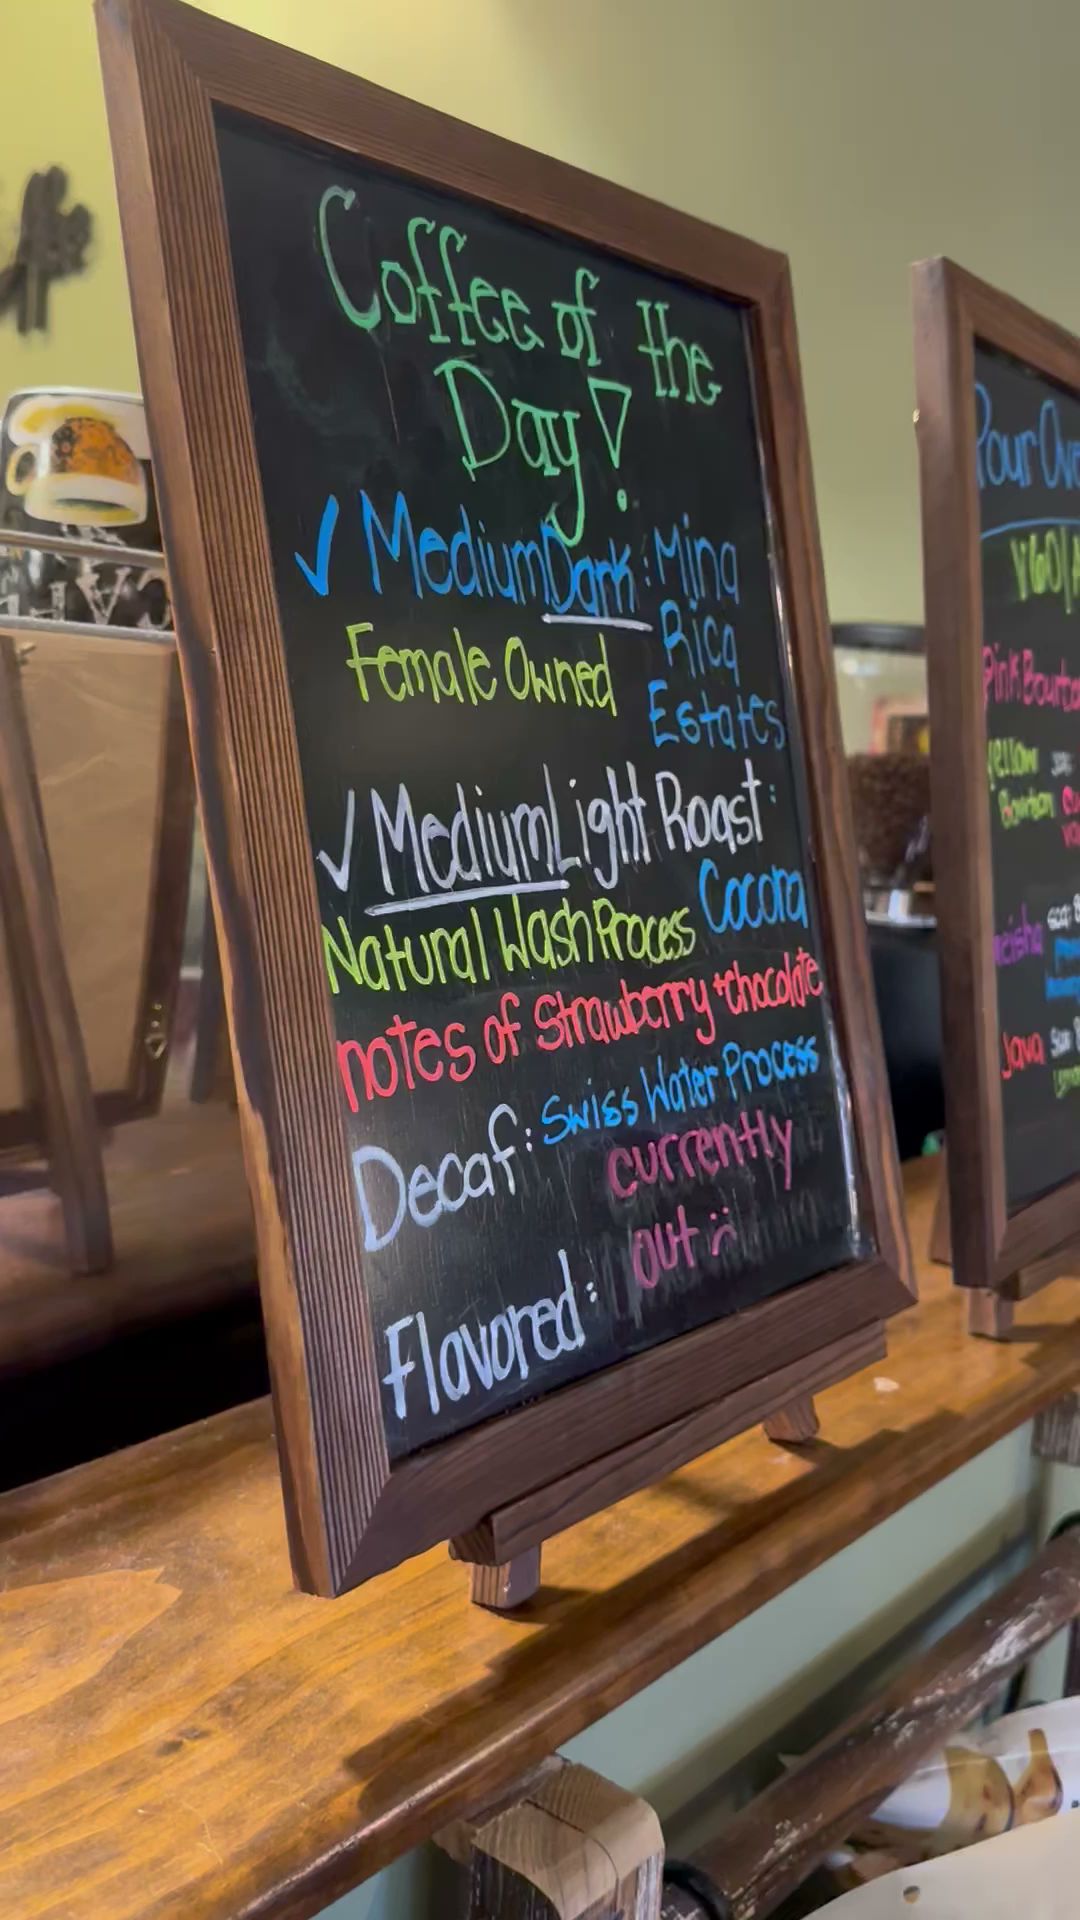 Coffee of the
Day!
✓ Medium Dark: Mina
Rica
Estates
Female Owned
✓ Medium Light Roast:
Cocora
Natural Wash Process
notes of Strawberry + chocolate
Decaf: Swiss Water Process
currently
out :(
Flavored:
Pour Ove
V60
Pink Bourbo
Yellow
Bourbon
eisha
Java